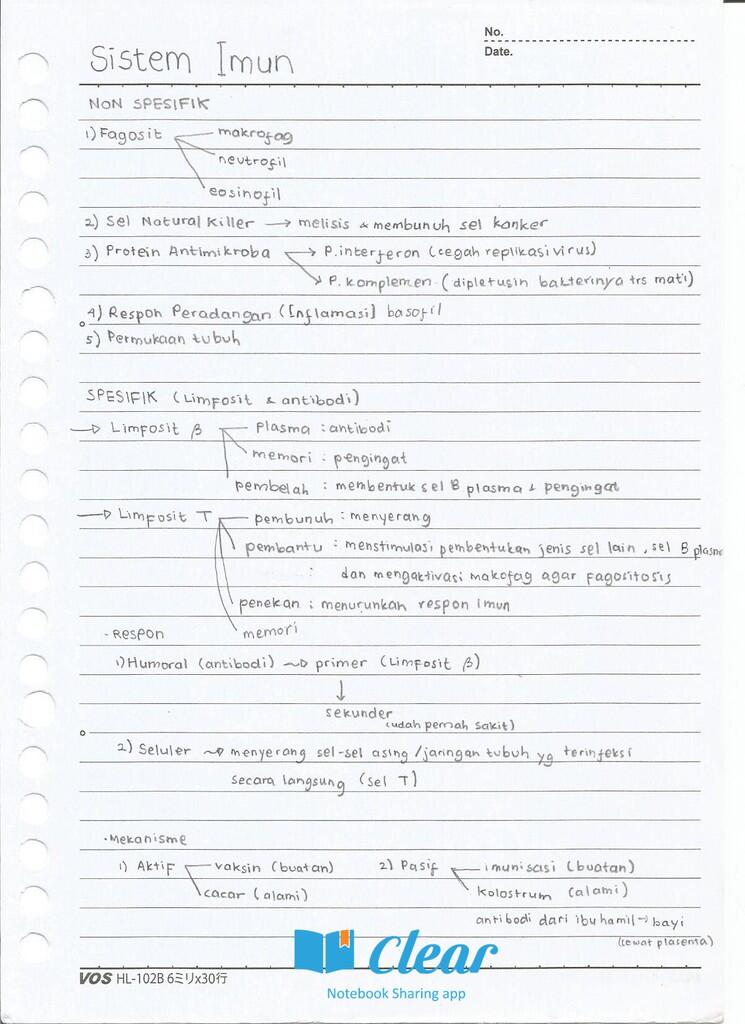 No.
Date.
Sistem Imun
NON SPESIFIK
1) Fagosit makrofag
neutrofil
eosinofil
2) Sel Natural Killer → melisis & membunuh sel kanker
3) Protein Antimikroba → P.interferon (cegah replikasi virus)
→ P.komplemen (dipletusin bakterinya trs mati)
4) Respon Peradangan (Inflamasi] basofil
5) Permukaan tubuh
SPESIFIK (Limfosit & antibodi)
→ Limfosit β Plasma : antibodi
memori : pengingat
pembelah : membentuk sel B plasma & pengingat
→ Limfosit T pembunuh : menyerang
pembantu : menstimulasi pembentukan jenis sel lain, sel B plasma
: dan mengaktivasi makofag agar fagositosis
penekan : menurunkan respon imun
memori
- Respon
1) Humoral (antibodi) → primer (Limfosit β)
↓
sekunder
(udah pernah sakit)
2) Seluler → menyerang sel-sel asing / jaringan tubuh yg terinfeksi
secara langsung (sel T)
• Mekanisme
1) Aktif vaksin (buatan) 2) Pasif imunisasi (buatan)
cacar (alami) kolostrum (alami)
antibodi dari ibu hamil → bayi
(lewat plasenta)
Clear
Notebook Sharing app
VOS HL-102B 6ミリx30行